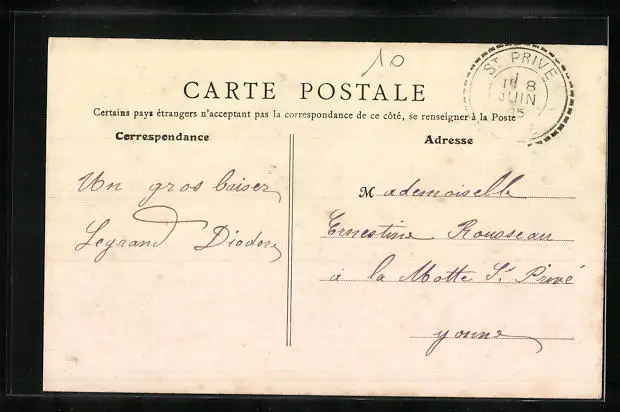 10
CARTE POSTALE
Certains pays étrangers n'acceptant pas la correspondance de ce côté, se renseigner à la Poste
Correspondance
Adresse
Un gros baiser
Legrand Diodore
Mademoiselle
Ernestine Rousseau
à la Motte St Privé
yonne
ST PRIVE
8
JUIN
05